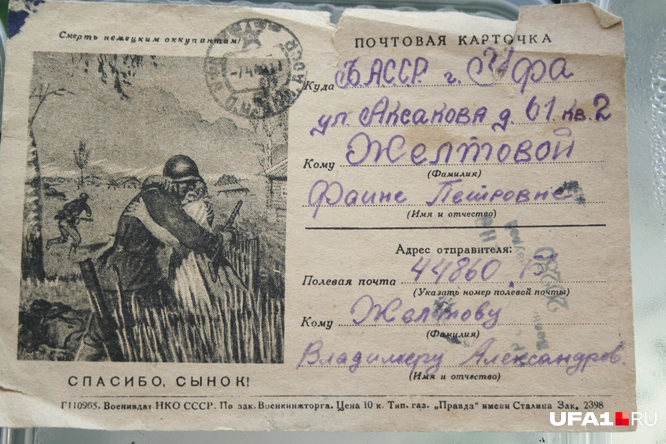 Смерть немецким оккупантам!
СПАСИБО, СЫНОК!
ПОЧТОВАЯ КАРТОЧКА
Куда БАССР г. Уфа
ул. Аксакова д. 61. кв. 2
Кому Желтовой
(Фамилия)
Фаине Петровне
(Имя и отчество)
Адрес отправителя:
Полевая почта 44860
(Указать номер полевой почты)
Кому Желтову
(Фамилия)
Владимиру Александров.
(Имя и отчество)
Г110965. Воениздат НКО СССР. По зак. Военкнижторга. Цена 10 к. Тип. газ. „Правда" имени Сталина Зак. 2398
UFA1.RU